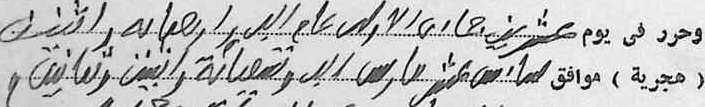 وحرر فى يوم عشرين جمادى الاولى عام الف واربعمائه واثنين
( هجرية ) موافق سادس عشر مارس الف وتسعمائة واثنين وثمانين